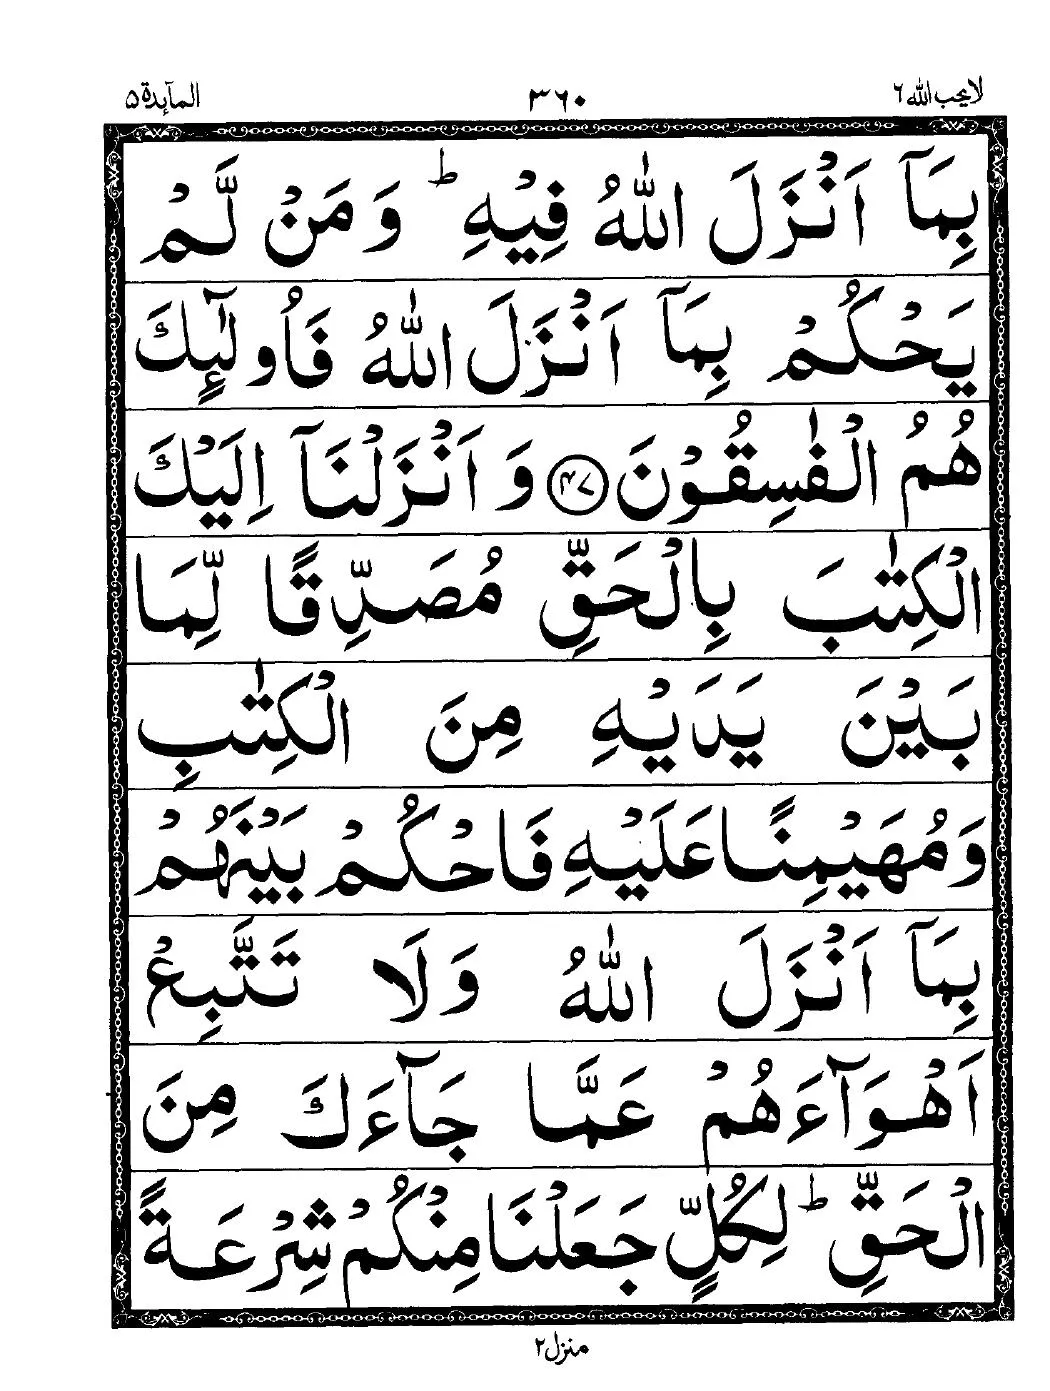 لايحب الله ٦ ٣٦٠ المآىِٕدة ٥
بِمَاۤ اَنْزَلَ اللّٰهُ فِیْهِ ؕ وَ مَنْ لَّمْ
یَحْكُمْ بِمَاۤ اَنْزَلَ اللّٰهُ فَاُولٰٓىِٕكَ
هُمُ الْفٰسِقُوْنَ ﴿۴۷﴾ وَ اَنْزَلْنَاۤ اِلَیْكَ
الْكِتٰبَ بِالْحَقِّ مُصَدِّقًا لِّمَا
بَیْنَ یَدَیْهِ مِنَ الْكِتٰبِ
وَ مُهَیْمِنًا عَلَیْهِ فَاحْكُمْ بَیْنَهُمْ
بِمَاۤ اَنْزَلَ اللّٰهُ وَلَا تَتَّبِعْ
اَهْوَآءَهُمْ عَمَّا جَآءَكَ مِنَ
الْحَقِّ ؕ لِكُلٍّ جَعَلْنَا مِنْكُمْ شِرْعَةً
منزل ٢